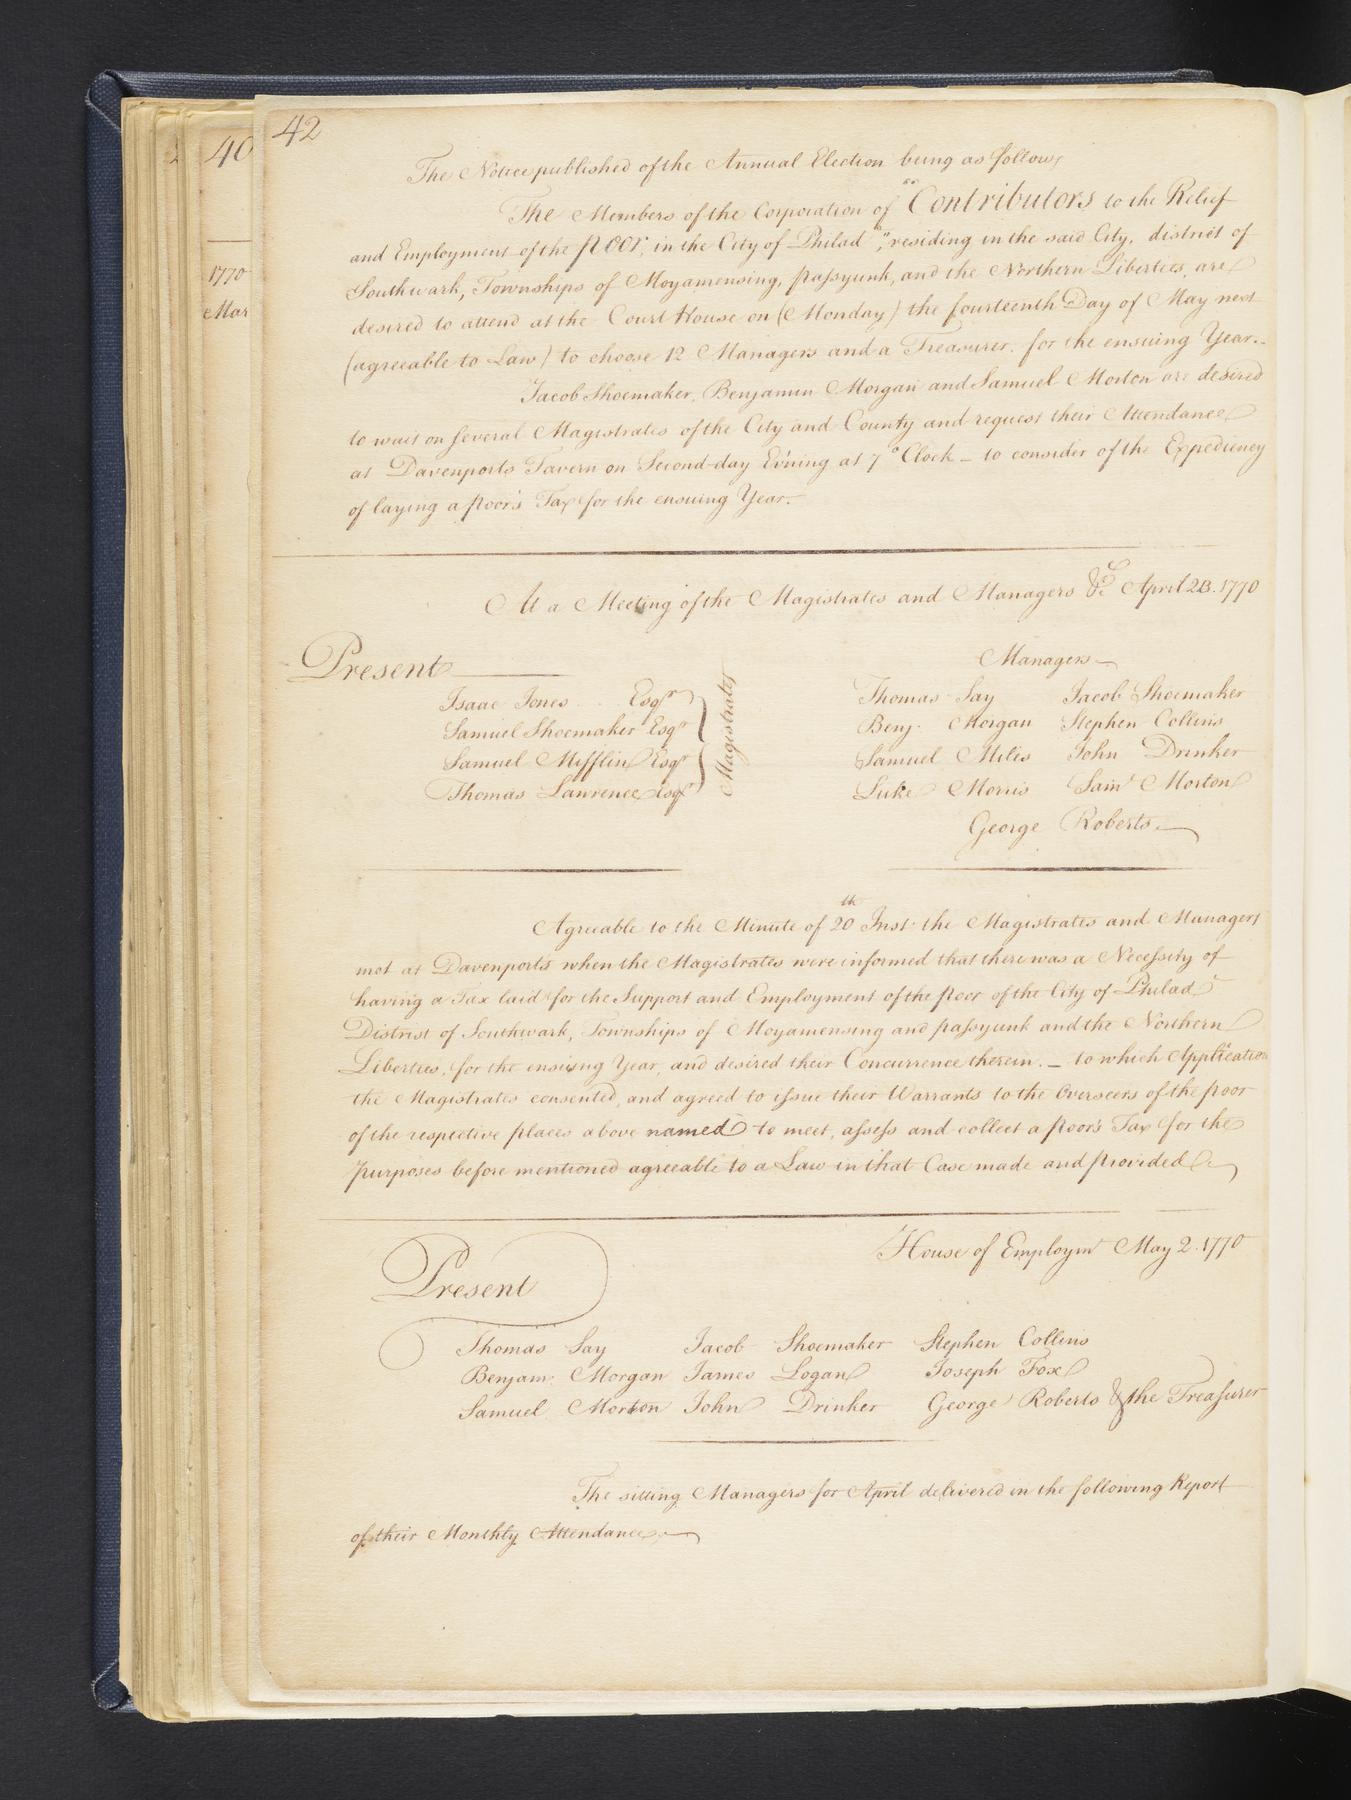 42
40
1770
Mar
The Notice published of the Annual Election being as follows
The Members of the Corporation of "Contributors to the Relief
and Employment of the poor, in the City of Philada", residing in the said City, district of
Southwark, Townships of Moyamensing, passyunk, and the Northern Liberties, are
desired to attend at the Court House on (Monday) the fourteenth Day of May next
(agreeable to Law) to choose 12 Managers and a Treasurer. for the ensuing Year.
Jacob Shoemaker, Benjamin Morgan and Samuel Morton are desired
to wait on several Magistrates of the City and County and request their Attendance
at Davenports Tavern on Second-day Ev'ning at 7 o'Clock – to consider of the Expediency
of laying a poor's Tax for the ensuing Year.
At a Meeting of the Magistrates and Managers &c April 23. 1770
Present
Managers
Isaac Jones Esqr
Samuel Shoemaker Esqr
Samuel Mifflin Esqr
Thomas Lawrence Esqr
Magistrates
Thomas Say Jacob Shoemaker
Benj. Morgan Stephen Collins
Samuel Miles John Drinker
Luke Morris Saml Morton
George Roberts
Agreeable to the Minute of 20th Inst. the Magistrates and Managers
met at Davenports when the Magistrates were informed that there was a Necessity of
having a Tax laid for the Support and Employment of the poor of the City of Philada
District of Southwark, Townships of Moyamensing and passyunk and the Northern
Liberties, for the ensuing Year, and desired their Concurrence therein. – to which Application
the Magistrates consented, and agreed to issue their Warrants to the Overseers of the poor
of the respective places above named to meet, assess and collect a poor's Tax for the
purposes before mentioned agreeable to a Law in that Case made and provided
House of Employmt May 2. 1770
Present
Thomas Say Jacob Shoemaker Stephen Collins
Benjam. Morgan James Logan Joseph Fox
Samuel Morton John Drinker George Roberts & the Treasurer
The sitting Managers for April delivered in the following Report
of their Monthly Attendance